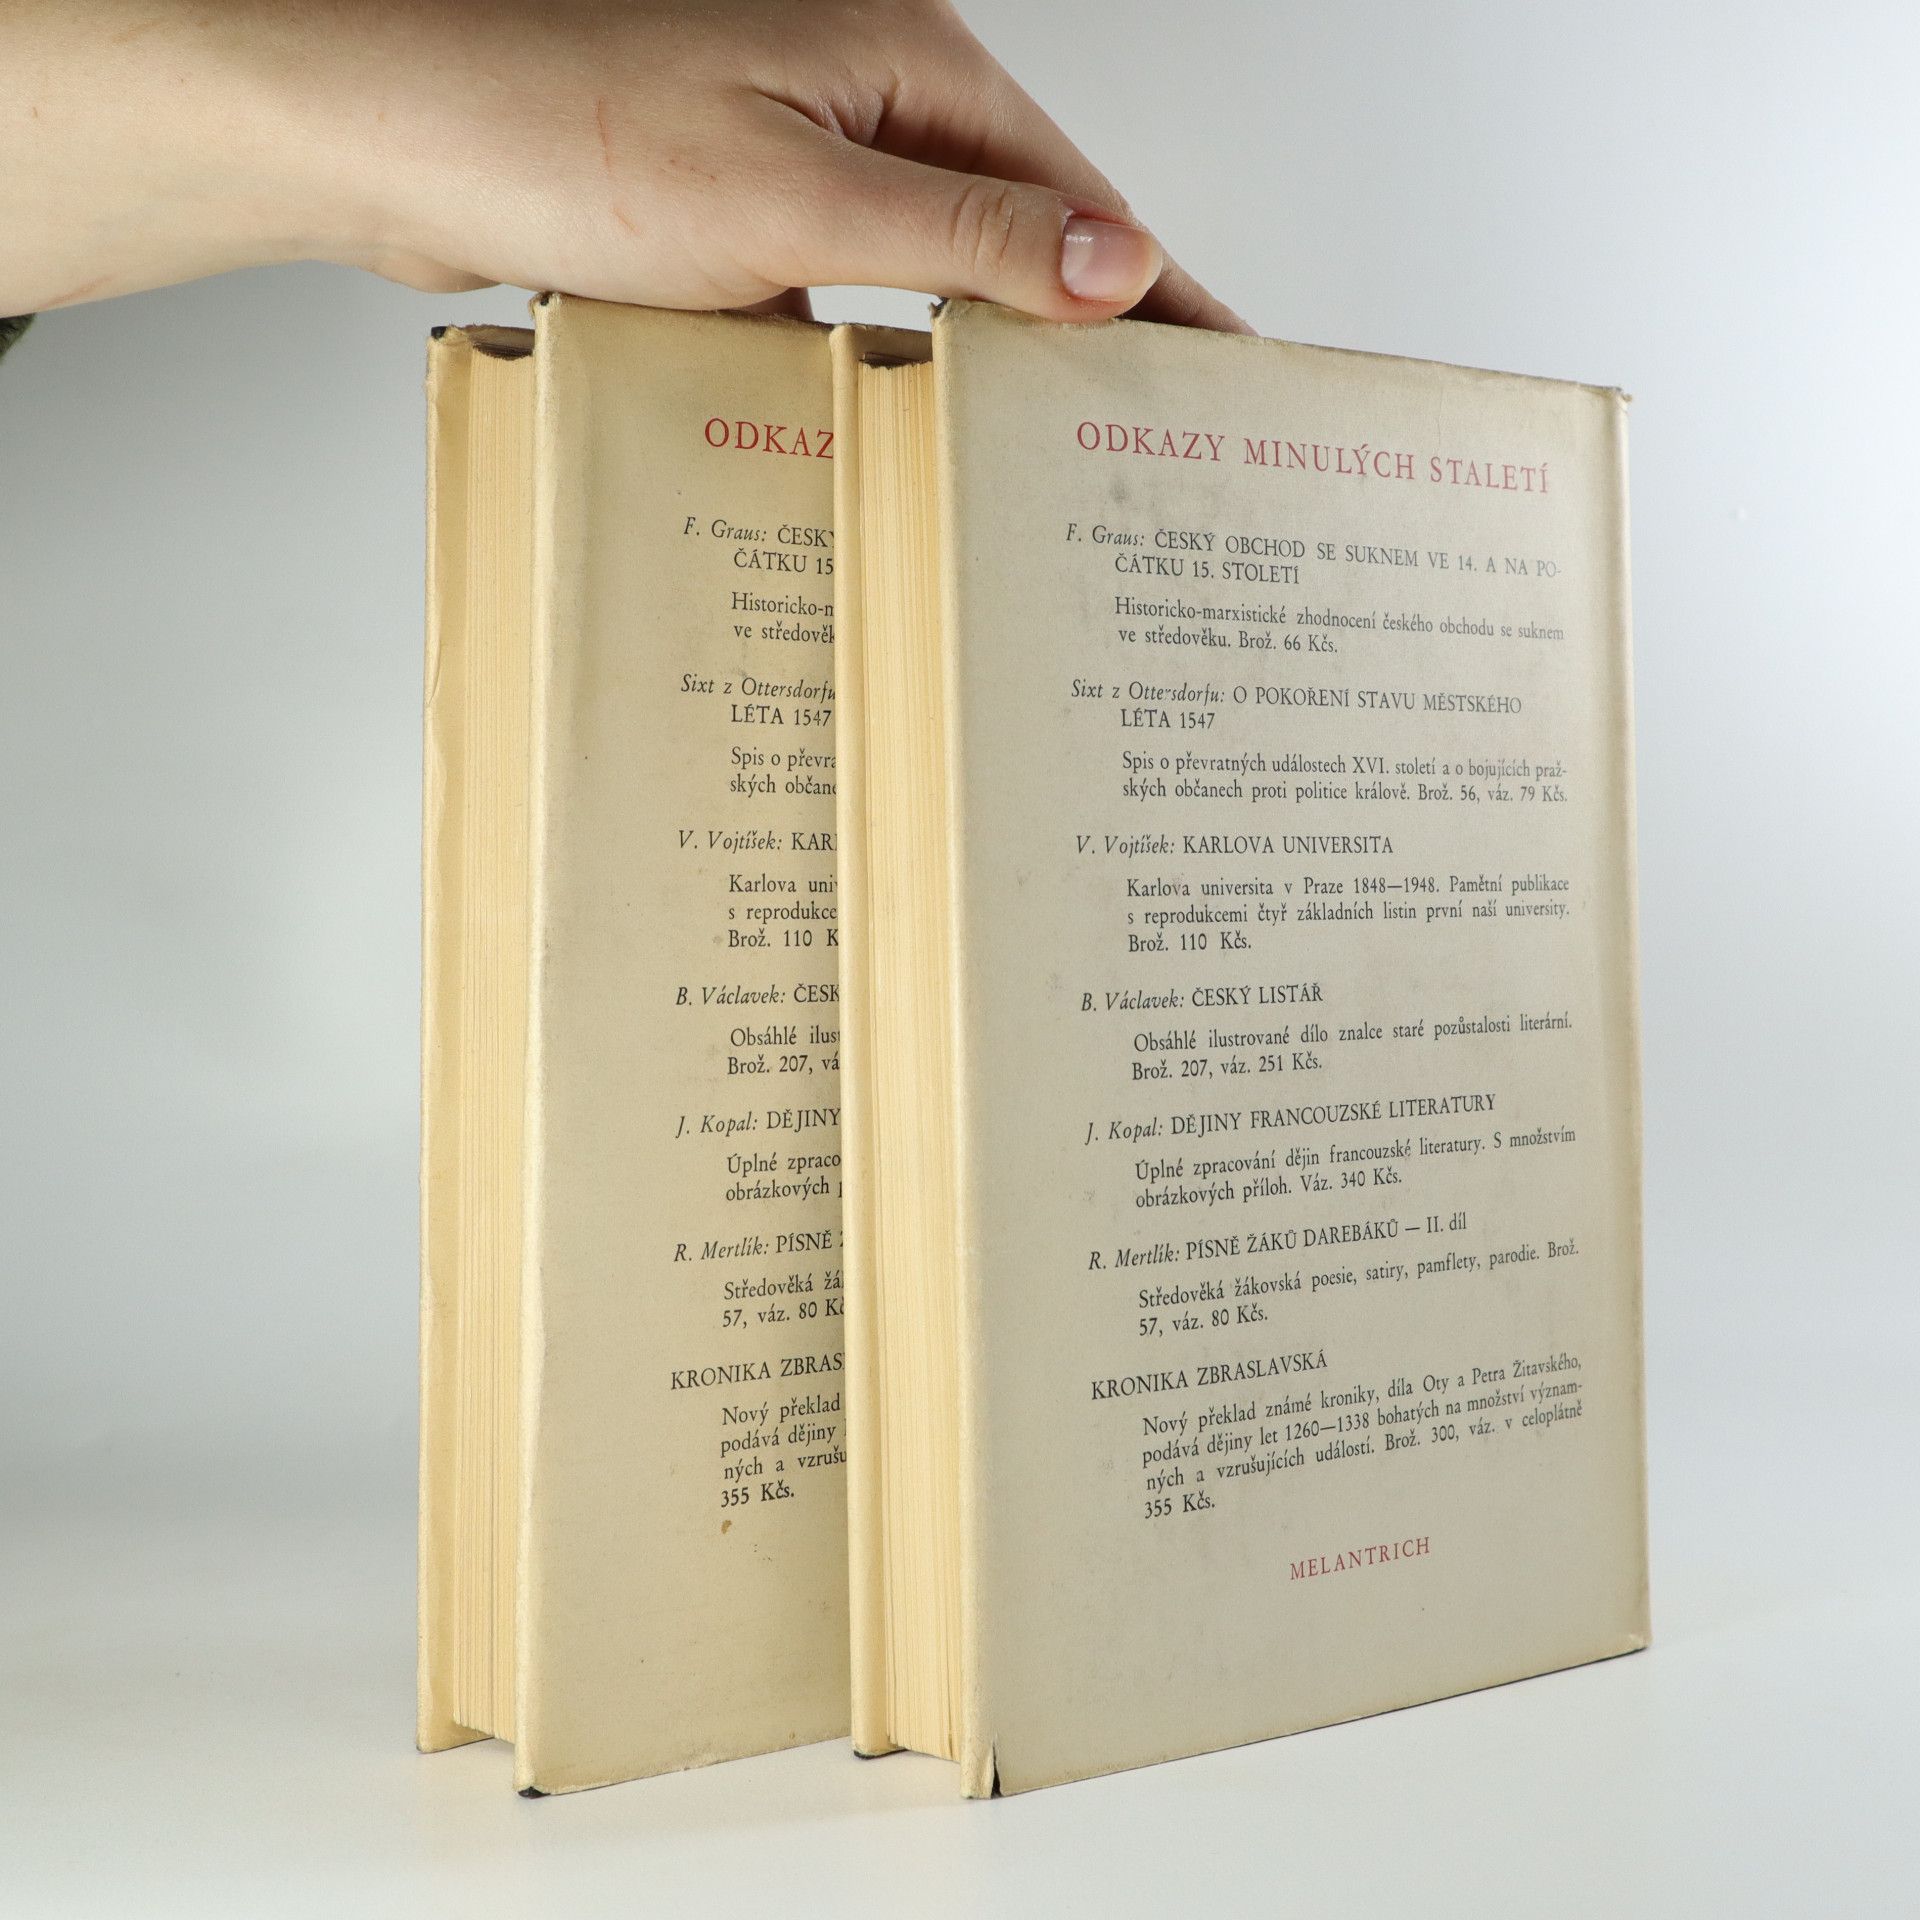 ODKAZ
F. Graus: ČESK
ČÁTKU 15
Historicko-m
ve středověk
Sixt z Ottersdorfu
LÉTA 1547
Spis o převra
ských občane
V. Vojtíšek: KAR
Karlova uni
s reprodukce
Brož. 110 K
B. Václavek: ČESK
Obsáhlé ilus
Brož. 207, vá
J. Kopal: DĚJINY
Úplné zpraco
obrázkových
R. Mertlík: PÍSNĚ
Středověká žá
57, váz. 80 Kč
KRONIKA ZBRAS
Nový překlad
podává dějiny
ných a vzrušu
355 Kčs.
ODKAZY MINULÝCH STALETÍ
F. Graus: ČESKÝ OBCHOD SE SUKNEM VE 14. A NA PO-
ČÁTKU 15. STOLETÍ
Historicko-marxistické zhodnocení českého obchodu se suknem
ve středověku. Brož. 66 Kčs.
Sixt z Ottersdorfu: O POKOŘENÍ STAVU MĚSTSKÉHO
LÉTA 1547
Spis o převratných událostech XVI. století a o bojujících praž-
ských občanech proti politice králově. Brož. 56, váz. 79 Kčs.
V. Vojtíšek: KARLOVA UNIVERSITA
Karlova universita v Praze 1848—1948. Pamětní publikace
s reprodukcemi čtyř základních listin první naší university.
Brož. 110 Kčs.
B. Václavek: ČESKÝ LISTÁŘ
Obsáhlé ilustrované dílo znalce staré pozůstalosti literární.
Brož. 207, váz. 251 Kčs.
J. Kopal: DĚJINY FRANCOUZSKÉ LITERATURY
Úplné zpracování dějin francouzské literatury. S množstvím
obrázkových příloh. Váz. 340 Kčs.
R. Mertlík: PÍSNĚ ŽÁKŮ DAREBÁKŮ — II. díl
Středověká žákovská poesie, satiry, pamflety, parodie. Brož.
57, váz. 80 Kčs.
KRONIKA ZBRASLAVSKÁ
Nový překlad známé kroniky, díla Oty a Petra Žitavského,
podává dějiny let 1260—1338 bohatých na množství význam-
ných a vzrušujících událostí. Brož. 300, váz. v celoplátně
355 Kčs.
MELANTRICH